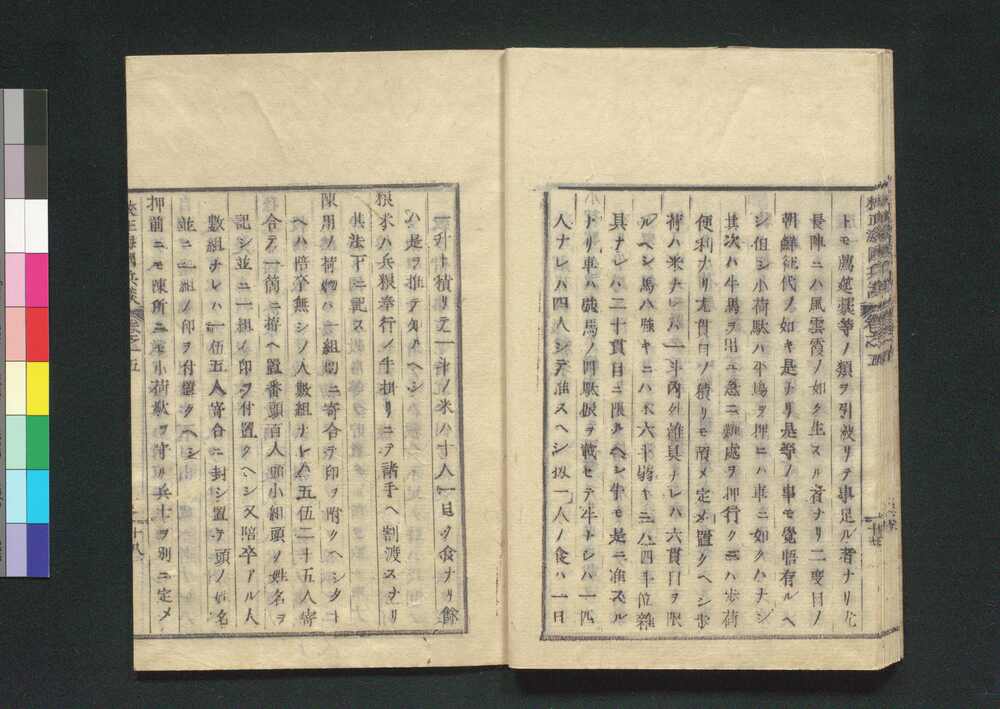 上モ薦莚莚等ノ類ヲ引被リテ事足ル者ナリ尤
長陣ニハ風雲霞ノ如ク生スル者ナリ二度目ノ
朝鮮征伐ノ如キ是ナリ是等ノ事モ覺悟有ルヘ
シ但シ小荷駄ハ平場ヲ押ニハ車ニ如クハナシ
其次ハ牛馬ヲ出ス急ニ難處ヲ押行クニハ歩荷
便利ナリ尤貫目ノ積リモ預メ定メ置クヘシ歩
荷ハ米ナレハ一斗内外雜具ナレハ六貫目ヲ限
ルヘシ馬ハ強キニハ米六斗弱キニハ四斗位雜
具ナレハ二十貫目ニ限ルヘシ牛モ是ニ准スル
ナリ車ハ疲馬ノ四駄假ヲ載セテ牛ナレハ一匹
人ナレハ四人シテ推スヘシ扨一人ノ食ハ一日
一升ト積リテ一斗ノ米ハ十人一日ノ食ナリ餘
ハ是ヲ推テ知ルヘシ
粮米ハ兵粮奉行ノ手捌リニテ諸手ヘ割渡スナリ
其法下ニ記ス
陳用ノ荷物ハ一組切ニ寄合テ印ヲ附クヘシタト
ヘハ陪卒無シノ人數組ナレハ五伍二十五人寄
合テ一箇ニ拵ヘ置番頭百人頭小組頭ノ姓名ヲ
記シ並ニ一組ノ印ヲ付置クヘシ又陪卒アル人
數組ナレハ一伍五人寄合ニ封シ置テ頭ノ姓名
並ニ一組ノ印ヲ付置クヘシ
押前ニモ陳所ニモ小荷駄ヲ守ル兵士ヲ別ニ定メ